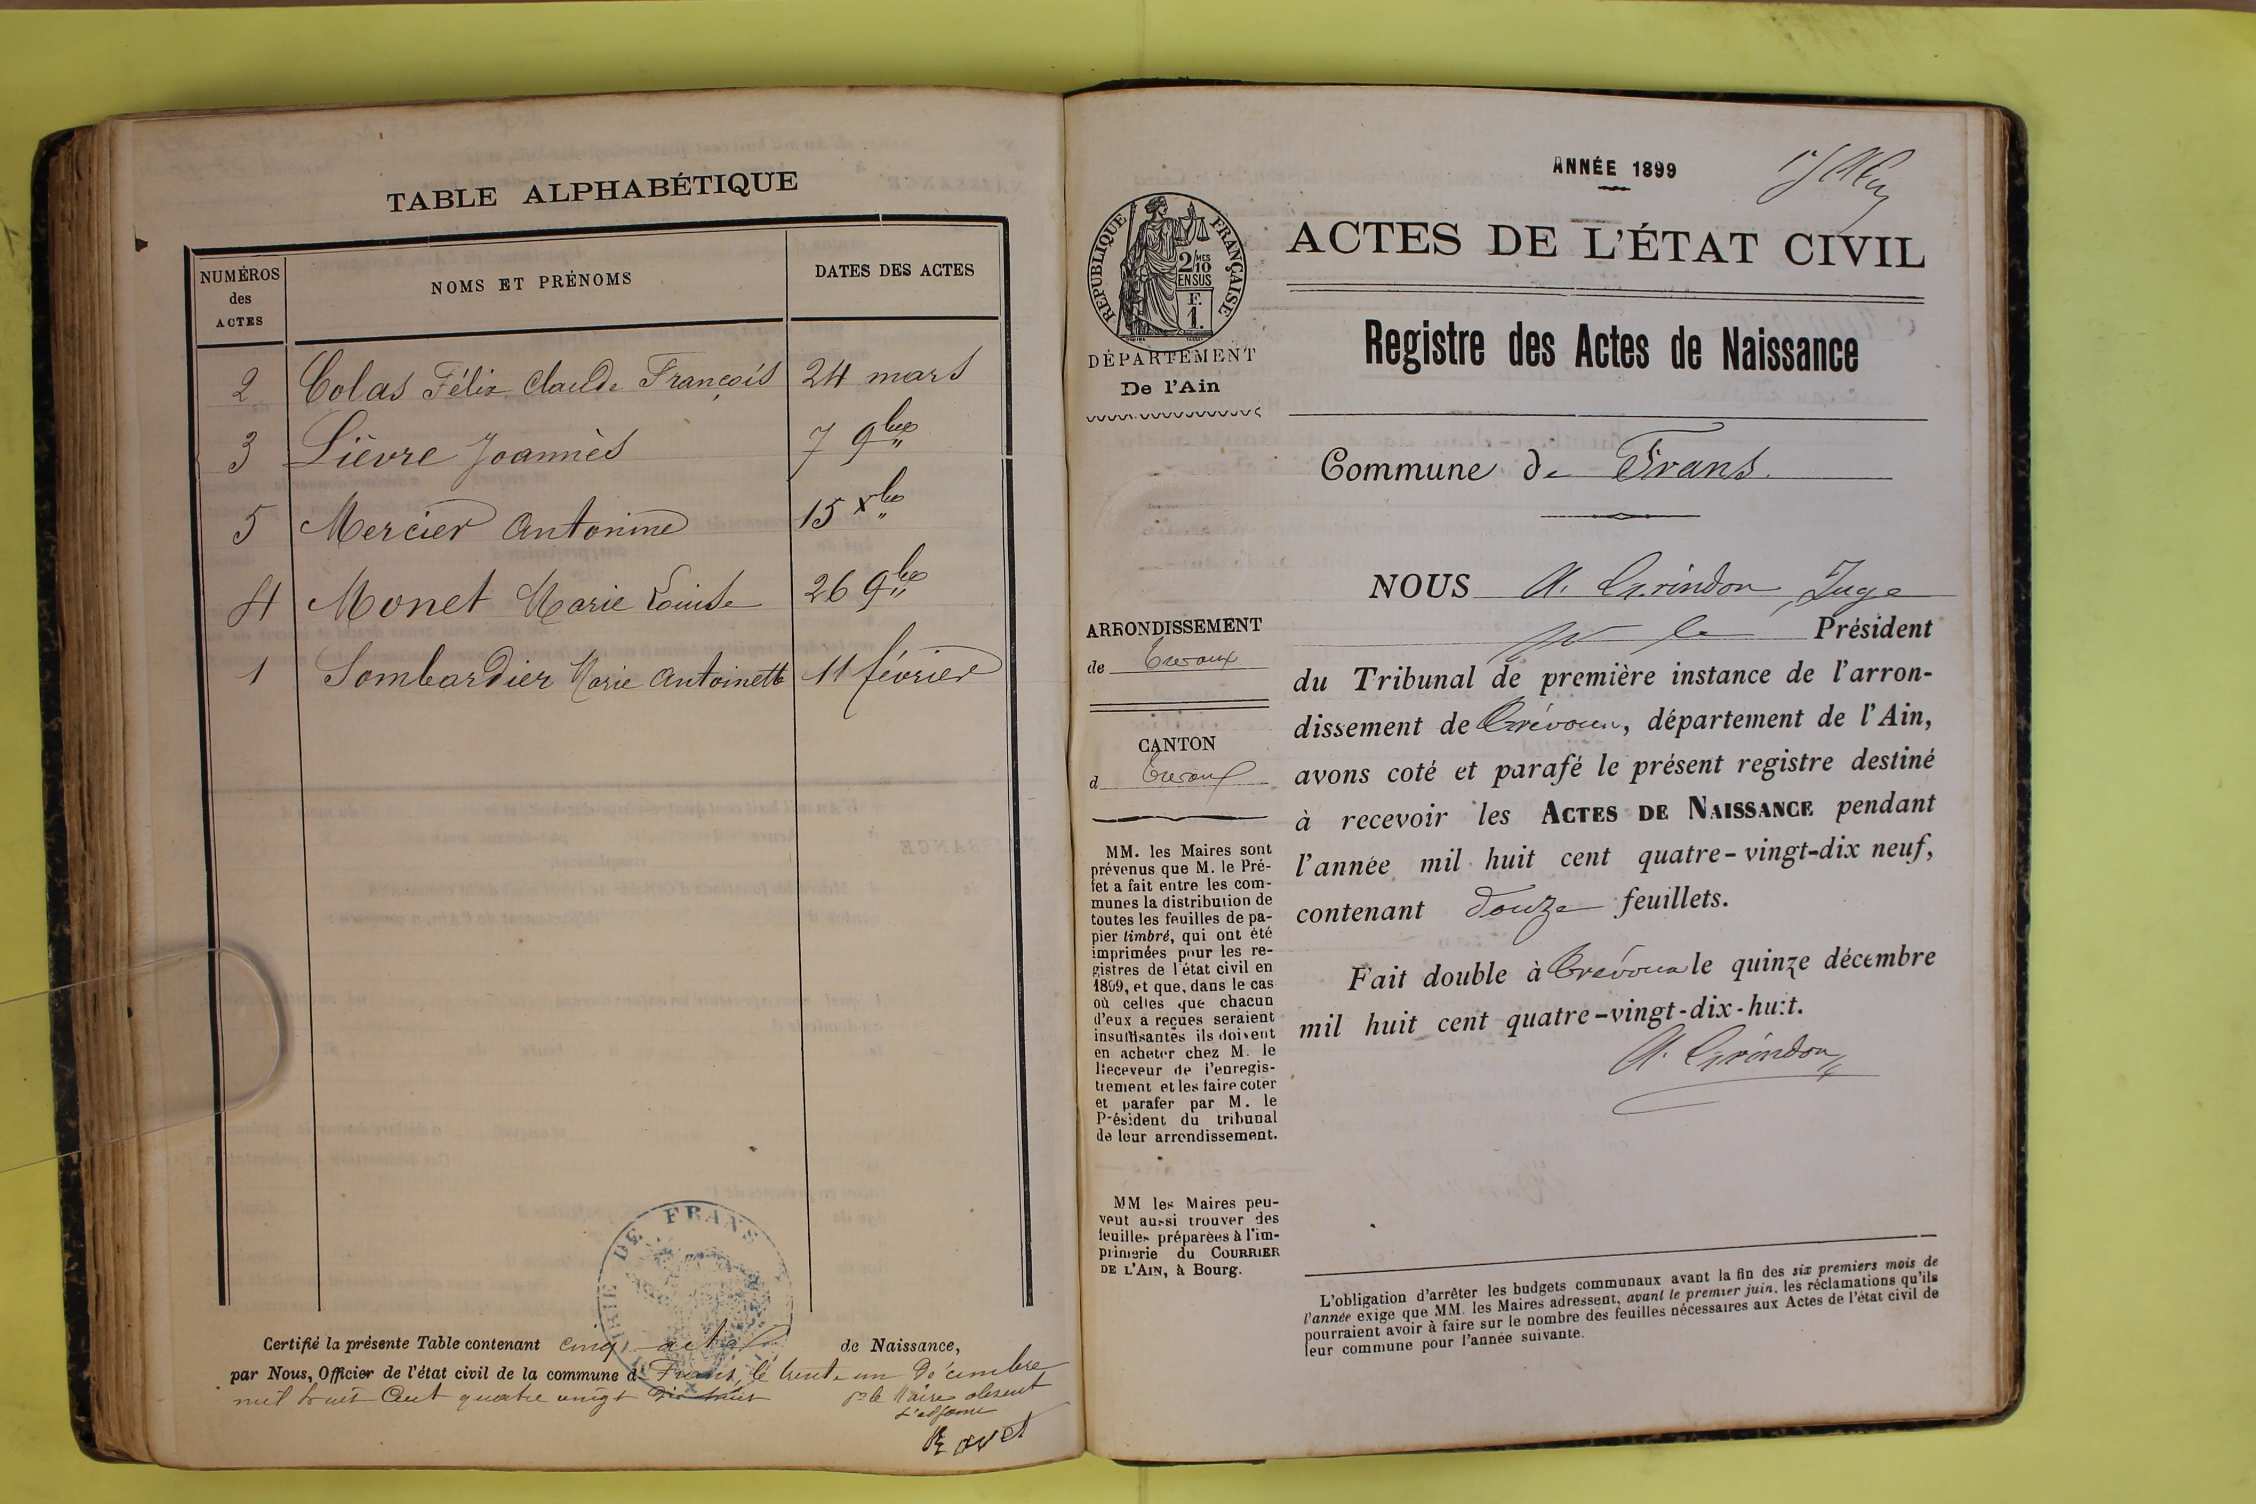 TABLE ALPHABÉTIQUE
NUMÉROS des ACTES
NOMS ET PRÉNOMS
DATES DES ACTES
2 Colas Félix Claude François 24 mars
3 Lièvre Joannès 7 9bre
5 Mercier Antonine 15 Xbre
4 Monet Marie Louise 26 9bre
1 Sombardier Marie Antoinette 11 février
MAIRIE DE FRANS
Certifié la présente Table contenant cinq actes de Naissance,
par Nous, Officier de l'état civil de la commune d Frans, le trente un Décembre
mil huit Cent quatre vingt dix huit
pr le Maire absent
l'adjoint
ANNÉE 1899
RÉPUBLIQUE FRANÇAISE
2/10 MES
EN SUS
F.
1.
ACTES DE L'ÉTAT CIVIL
DÉPARTEMENT
De l'Ain
Registre des Actes de Naissance
Commune de Frans.
ARRONDISSEMENT
de Trevoux
CANTON
d Trevoux
MM. les Maires sont
prévenus que M. le Pré-
fet a fait entre les com-
munes la distribution de
toutes les feuilles de pa-
pier timbré, qui ont été
imprimées pour les re-
gistres de l'état civil en
1899, et que, dans le cas
où celles que chacun
d'eux a reçues seraient
insuffisantes ils doivent
en acheter chez M. le
Receveur de l'enregis-
trement et les faire coter
et parafer par M. le
Président du tribunal
de leur arrondissement.
MM les Maires peu-
vent aussi trouver des
feuilles préparées à l'im-
primerie du COURRIER
DE L'AIN, à Bourg.
NOUS A. Grindon, Juge
pr le Président
du Tribunal de première instance de l'arron-
dissement de Trévoux, département de l'Ain,
avons coté et parafé le présent registre destiné
à recevoir les ACTES DE NAISSANCE pendant
l'année mil huit cent quatre-vingt-dix neuf,
contenant douze feuillets.
Fait double à Trévoux le quinze décembre
mil huit cent quatre-vingt-dix-huit.
A. Grindon
L'obligation d'arrêter les budgets communaux avant la fin des six premiers mois de
l'année exige que MM. les Maires adressent, avant le premier juin, les réclamations qu'ils
pourraient avoir à faire sur le nombre des feuilles nécessaires aux Actes de l'état civil de
leur commune pour l'année suivante.